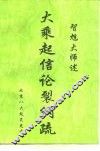 智旭大师述
大乘起信论裂网疏